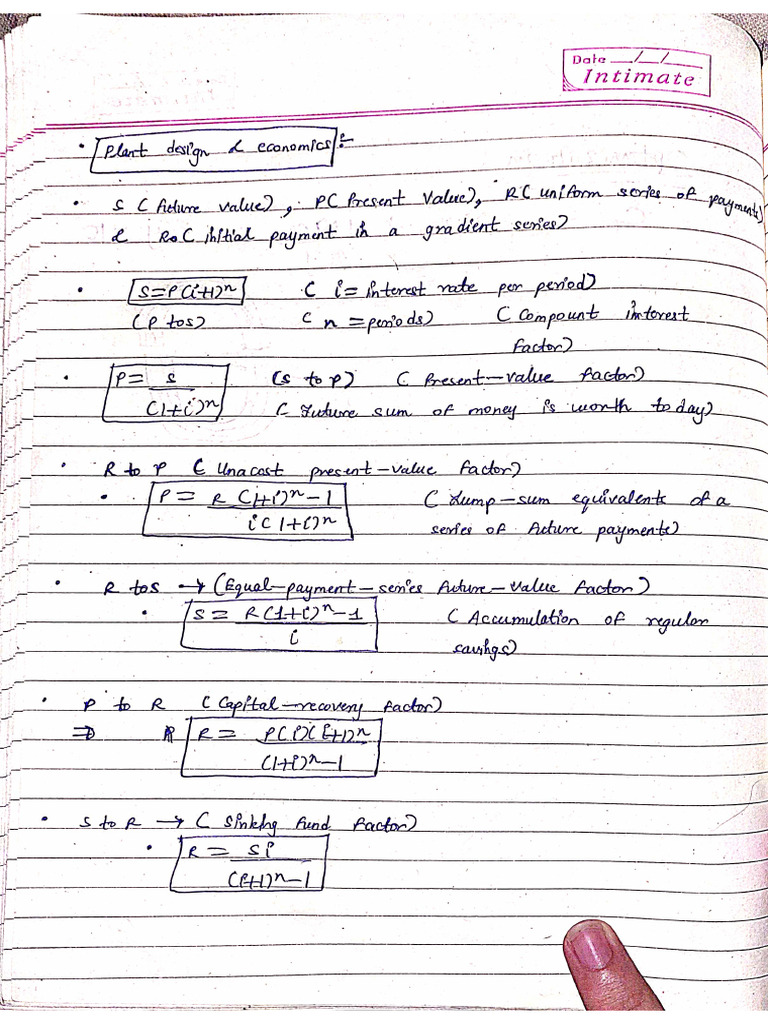 Date __/__/__
Intimate
• Plant design & economics :-
• S (future value), P(Present Value), R(uniform series of payments)
& R₀(initial payment in a gradient series)
• S=P(i+1)ⁿ (i= interest rate per period)
(P to S) (n = periods) (Compount interest factor)
• P= S/(1+i)ⁿ (S to P) (Present-value factor)
(Future sum of money is worth today)
• R to P (Unacost present-value factor)
• P= R(1+i)ⁿ-1/i(1+i)ⁿ (Lump-sum equivalents of a
series of future payments)
• R to S → (Equal-payment-series future-value factor)
• S= R(1+i)ⁿ-1/i (Accumulation of regular
savings)
• P to R (Capital-recovery factor)
⇒ R= P(i)(i+1)ⁿ/(1+i)ⁿ-1
• S to R → (Sinking fund factor)
• R= Si/(i+1)ⁿ-1